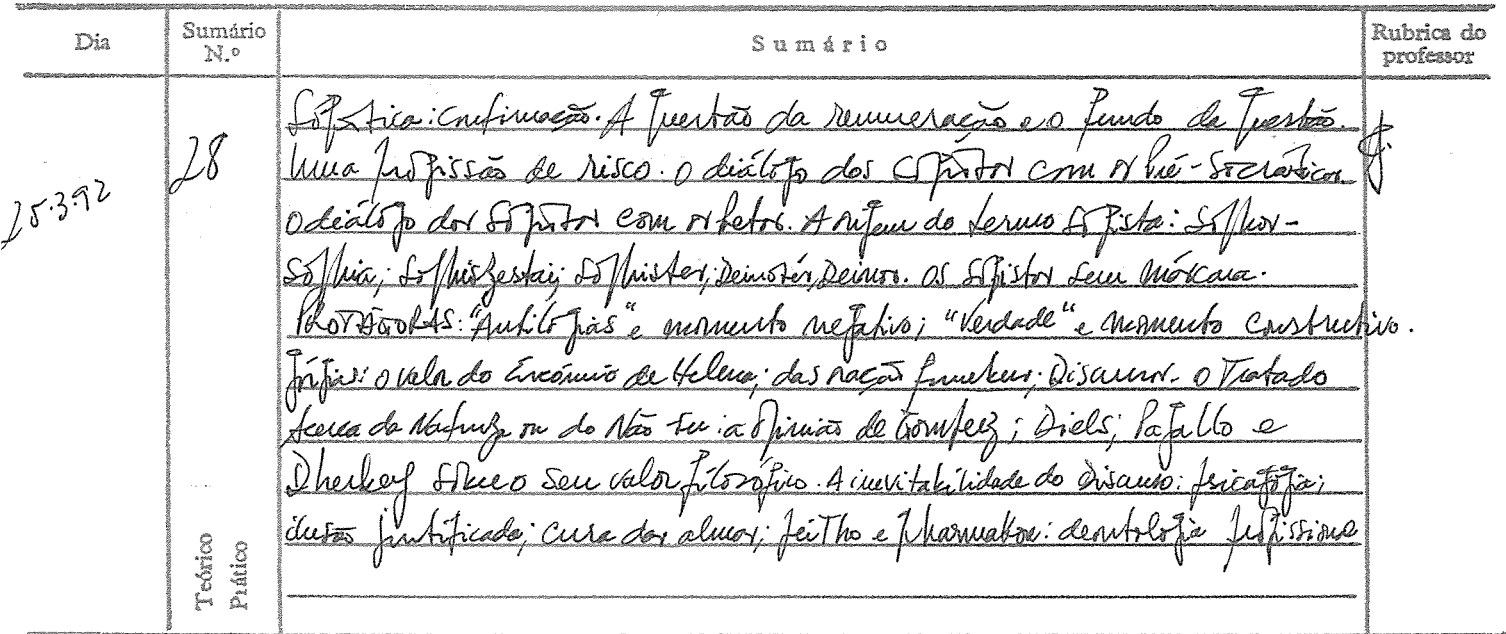 Dia
Sumário N.º
Sumário
Rubrica do professor
25.3.92
28
Sofística: continuação. A questão da remuneração e o fundo da questão.
Uma profissão de risco. O diálogo dos sofistas com os Pré-Socráticos
O diálogo dos sofistas com os poetas. A origem do termo sofista: Sophos-
Sophia; Sophizestai; Sophister; Deinotés, Deinos. Os sofistas sem máscara.
PROTÁGORAS: "Antilogias" e momento negativo; "Verdade" e momento constructivo.
Górgias: o valor do Encómio de Helena; das fúnebres; Discursos. O Tratado
Acerca da Natureza ou do Não Ser: a opinião de Gomperz; Diels; e
sobre o seu valor filosófico. A inevitabilidade do Discurso: psicagogia;
ilusão justificada; cura das almas; peitho e pharmakon: deontologia
Teórico
Prático